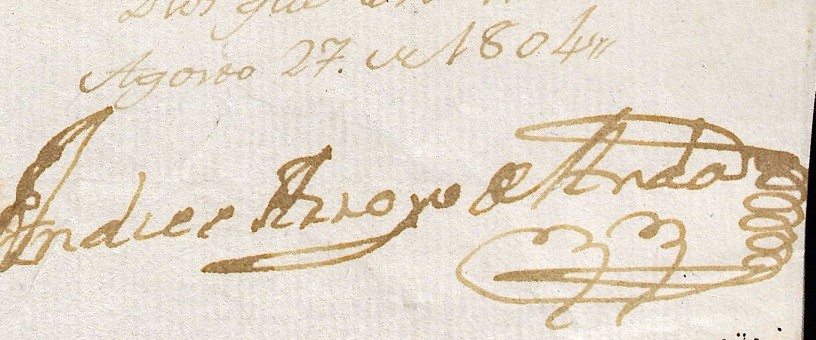 Dios que
Agosto 27. de 1804,,
Andres Arroyo de Anda